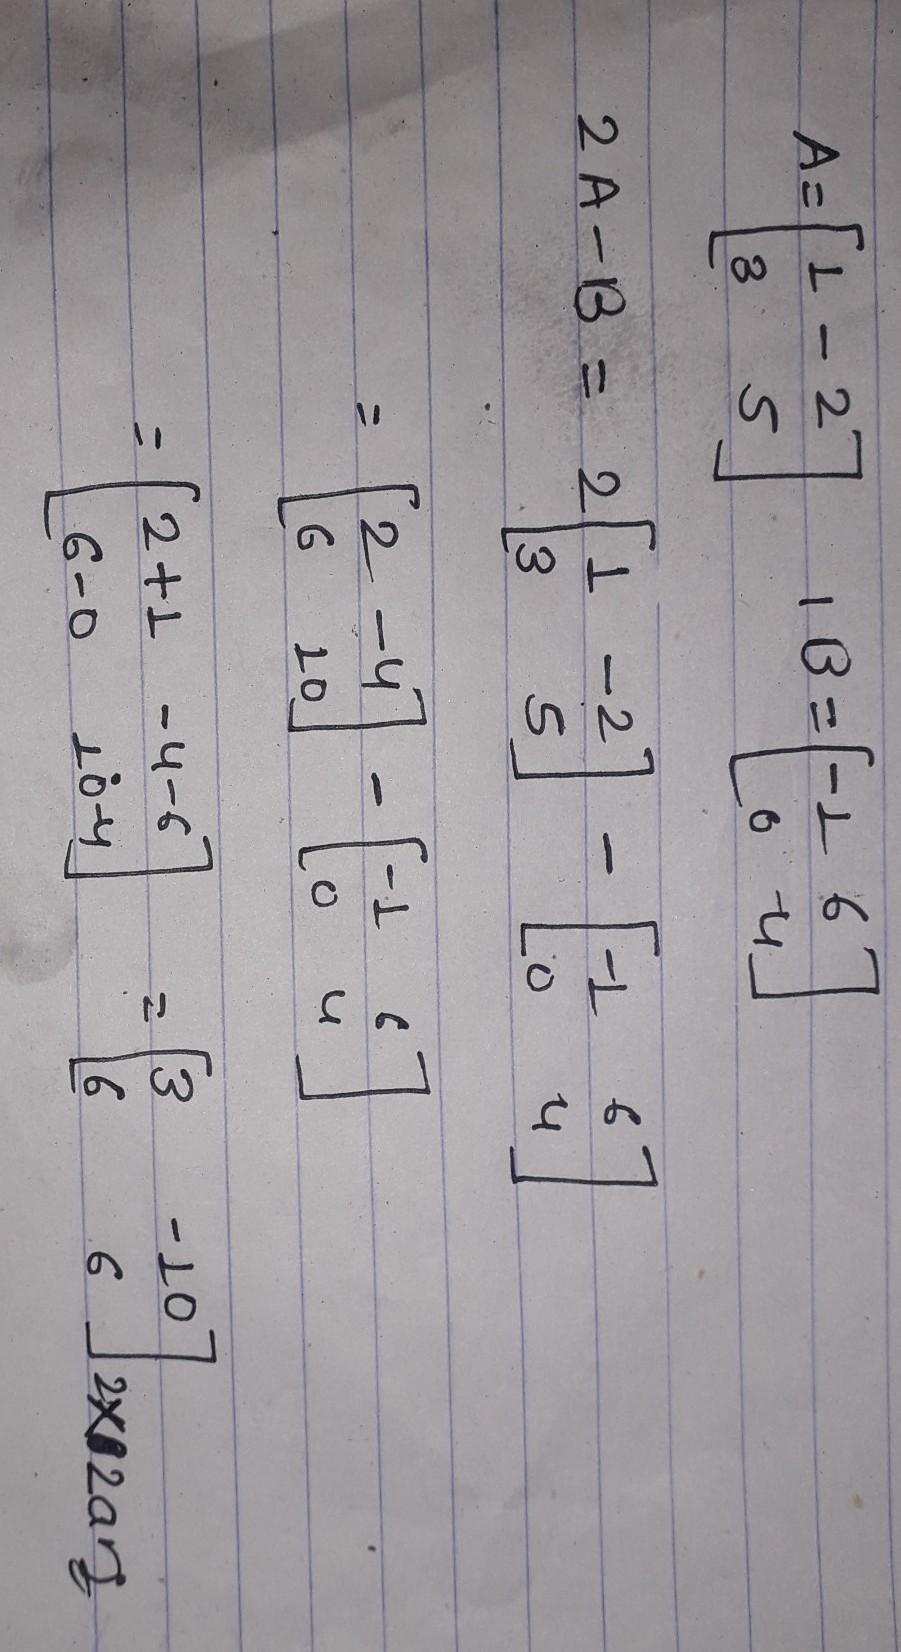 A = [1 -2
3 5] B = [-1 6
0 4]
2A-B = 2[1 -2
3 5] - [-1 6
0 4]
= [2 -4
6 10] - [-1 6
0 4]
= [2+1 -4-6
6-0 10-4] = [3 -10
6 6] 2x2